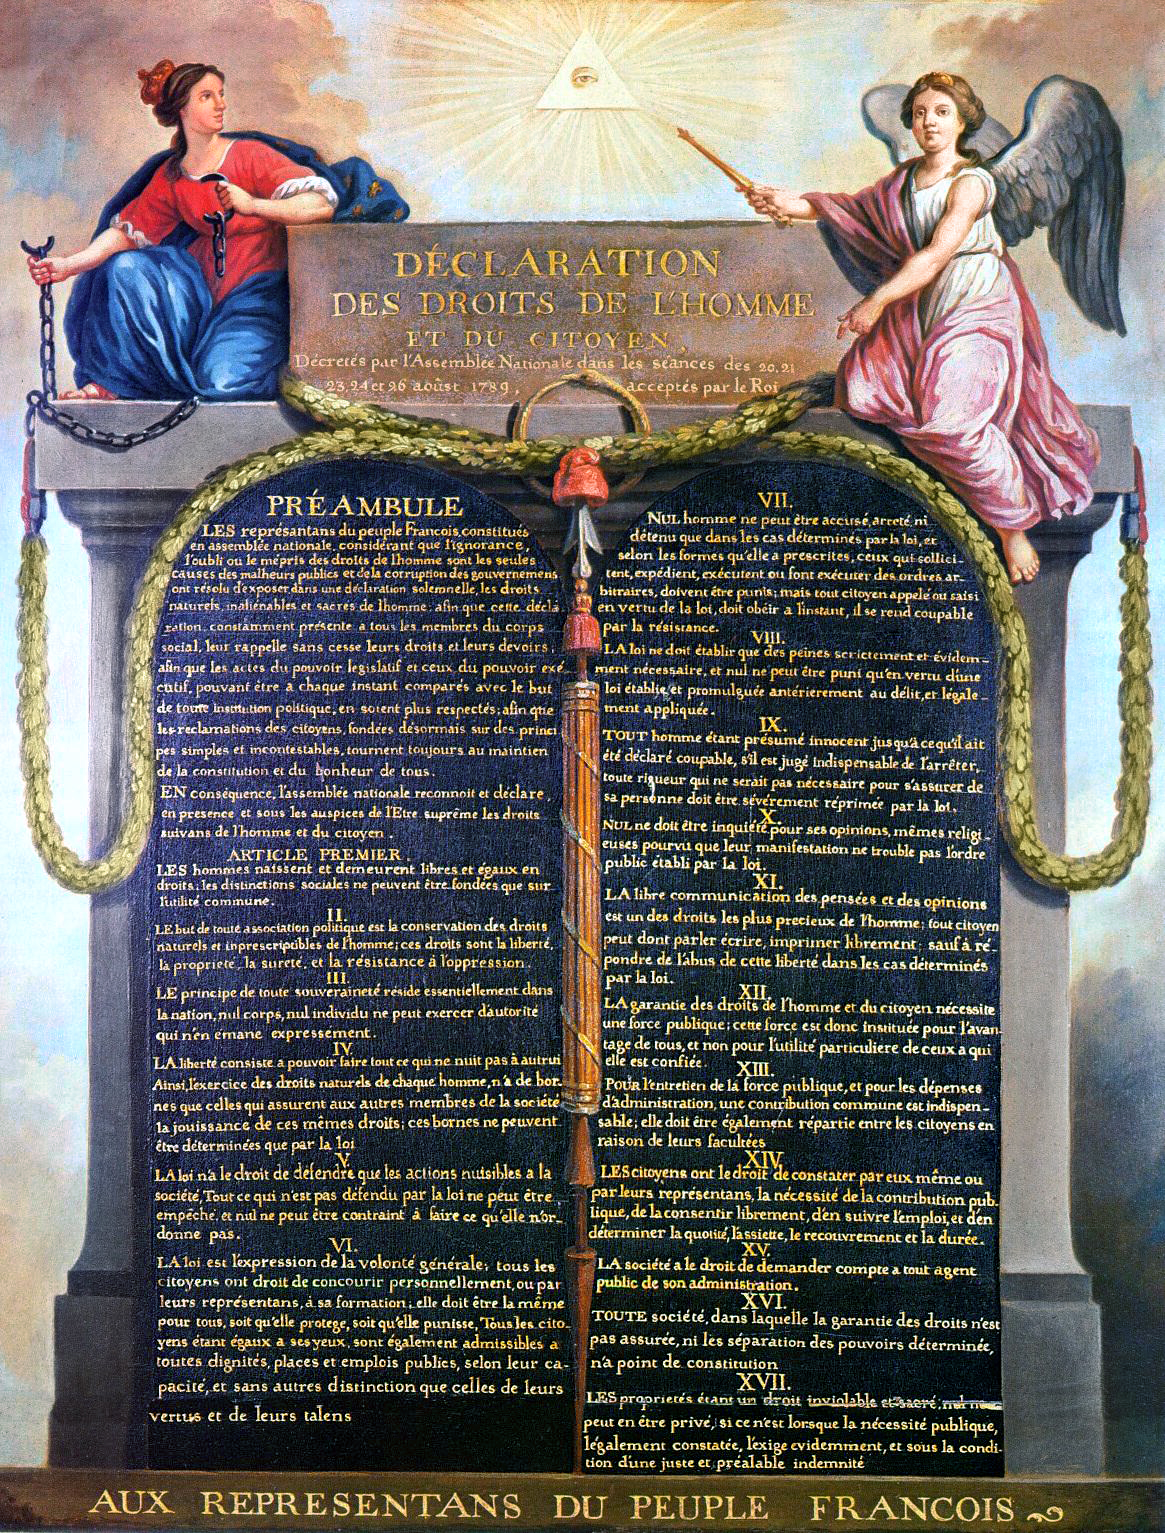 DÉCLARATION
DES DROITS DE L'HOMME
ET DU CITOYEN,
Décretés par l'Assemblée Nationale dans les séances des 20, 21
23, 24 et 26 août 1789, acceptés par le Roi
PRÉAMBULE
LES représantans du peuple François, constitués
en assemblée nationale, considérant que l'ignorance,
l'oubli ou le mépris des droits de l'homme sont les seules
causes des malheurs publics et de la corruption des gouvernemens
ont résolu d'exposer dans une déclaration solemnelle, les droits
naturels, inaliénables et sacrés de l'homme; afin que cette décla
ration, constamment présente a tous les membres du corps
social, leur rappelle sans cesse leurs droits et leurs devoirs;
afin que les actes du pouvoir legislatif et ceux du pouvoir exé
cutif, pouvant être a chaque instant comparés avec le but
de toute institution politique, en soient plus respectés; afin que
les reclamations des citoyens, fondées désormais sur des princi
pes simples et incontestables, tournent toujours au maintien
de la constitution et du bonheur de tous.
EN conséquence, l'assemblée nationale reconnoit et déclare,
en presence et sous les auspices de l'Etre suprême les droits
suivans de l'homme et du citoyen.
ARTICLE PREMIER.
LES hommes naissent et demeurent libres et égaux en
droits; les distinctions sociales ne peuvent être fondées que sur
l'utilité commune.
II.
LE but de toute association politique est la conservation des droits
naturels et inprescriptibles de l'homme; ces droits sont la liberté,
la propriété, la sureté, et la résistance à l'oppression.
III.
LE principe de toute souveraineté réside essentiellement dans
la nation, nul corps, nul individu ne peut exercer d'autorité
qui n'en emane expressement.
IV.
LA liberté consiste a pouvoir faire tout ce qui ne nuit pas à autrui
Ainsi, l'exercice des droits naturels de chaque homme, n'a de bor-
nes que celles qui assurent aux autres membres de la société
la jouissance de ces mêmes droits; ces bornes ne peuvent
être déterminées que par la loi
V.
LA loi n'a le droit de défendre que les actions nuisibles a la
société. Tout ce qui n'est pas défendu par la loi ne peut être
empêché, et nul ne peut être contraint à faire ce qu'elle n'or-
donne pas.
VI.
LA loi est l'expression de la volonté générale; tous les
citoyens ont droit de concourir personnellement, ou par
leurs représentans, à sa formation; elle doit être la même
pour tous, soit qu'elle protege, soit qu'elle punisse. Tous les cito-
yens étant égaux a ses yeux, sont également admissibles a
toutes dignités, places et emplois publics, selon leur ca-
pacité, et sans autres distinction que celles de leurs
vertus et de leurs talens
VII.
NUL homme ne peut être accusé, arreté, ni
détenu que dans les cas déterminés par la loi, et
selon les formes qu'elle a prescrites, ceux qui sollici-
tent, expédient, exécutent ou font exécuter des ordres ar-
bitraires, doivent être punis; mais tout citoyen appelé ou saisi
en vertu de la loi, doit obéir a l'instant, il se rend coupable
par la résistance.
VIII.
LA loi ne doit établir que des peines strictement et évidem-
ment nécessaire, et nul ne peut être puni qu'en vertu d'une
loi établie et promulguée antérierement au délit, et légale-
ment appliquée.
IX.
TOUT homme étant présumé innocent jusqu'a ce qu'il ait
été déclaré coupable, s'il est jugé indispensable de l'arrêter,
toute rigueur qui ne serait pas nécessaire pour s'assurer de
sa personne doit être sévèrement réprimée par la loi.
X.
NUL ne doit être inquiété pour ses opinions, mêmes religi-
euses pourvu que leur manifestation ne trouble pas l'ordre
public établi par la loi.
XI.
LA libre communication des pensées et des opinions
est un des droits les plus precieux de l'homme; tout citoyen
peut dont parler écrire, imprimer librement; sauf à ré-
pondre de l'abus de cette liberté dans les cas déterminés
par la loi.
XII.
LA garantie des droits de l'homme et du citoyen nécessite
une force publique; cette force est donc instituée pour l'avan-
tage de tous, et non pour l'utilité particuliere de ceux a qui
elle est confiée.
XIII.
POUR l'entretien de la force publique, et pour les dépenses
d'administration, une contribution commune est indispen-
sable; elle doit être également répartie entre les citoyens en
raison de leurs facultées
XIV.
LES citoyens ont le droit de constater par eux même ou
par leurs représentans, la nécessité de la contribution pub-
lique, de la consentir librement, d'en suivre l'emploi, et d'en
déterminer la quotité, l'assiette, le recouvrement et la durée.
XV.
LA société a le droit de demander compte a tout agent
public de son administration.
XVI.
TOUTE société, dans laquelle la garantie des droits n'est
pas assurée, ni les séparation des pouvoirs déterminée,
n'a point de constitution
XVII.
LES proprietés étant un droit inviolable et sacré, nul ne
peut en être privé, si ce n'est lorsque la nécessité publique,
légalement constatée, l'exige evidemment, et sous la condi-
tion d'une juste et préalable indemnité
AUX REPRESENTANS DU PEUPLE FRANCOIS